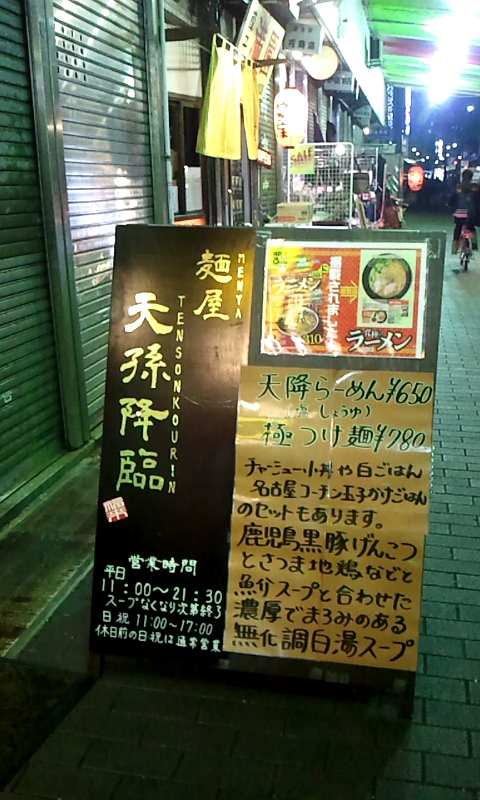 麺屋
MENYA
天孫降臨
TENSONKOURIN
営業時間
平日
11:00〜21:30
スープなくなり次第終了
日祝 11:00〜17:00
休日前の日祝は通常営業
ラーメン
掲載されました
ラーメン
天降らーめん¥650
(塩 しょうゆ)
極つけ麺¥780
チャーシュー小丼や白ごはん
名古屋コーチン玉子かけごはん
のセットもあります。
鹿児島黒豚げんこつ
とさつま地鶏などと
魚介スープと合わせた
濃厚でまろみのある
無化調白湯スープ
SALE